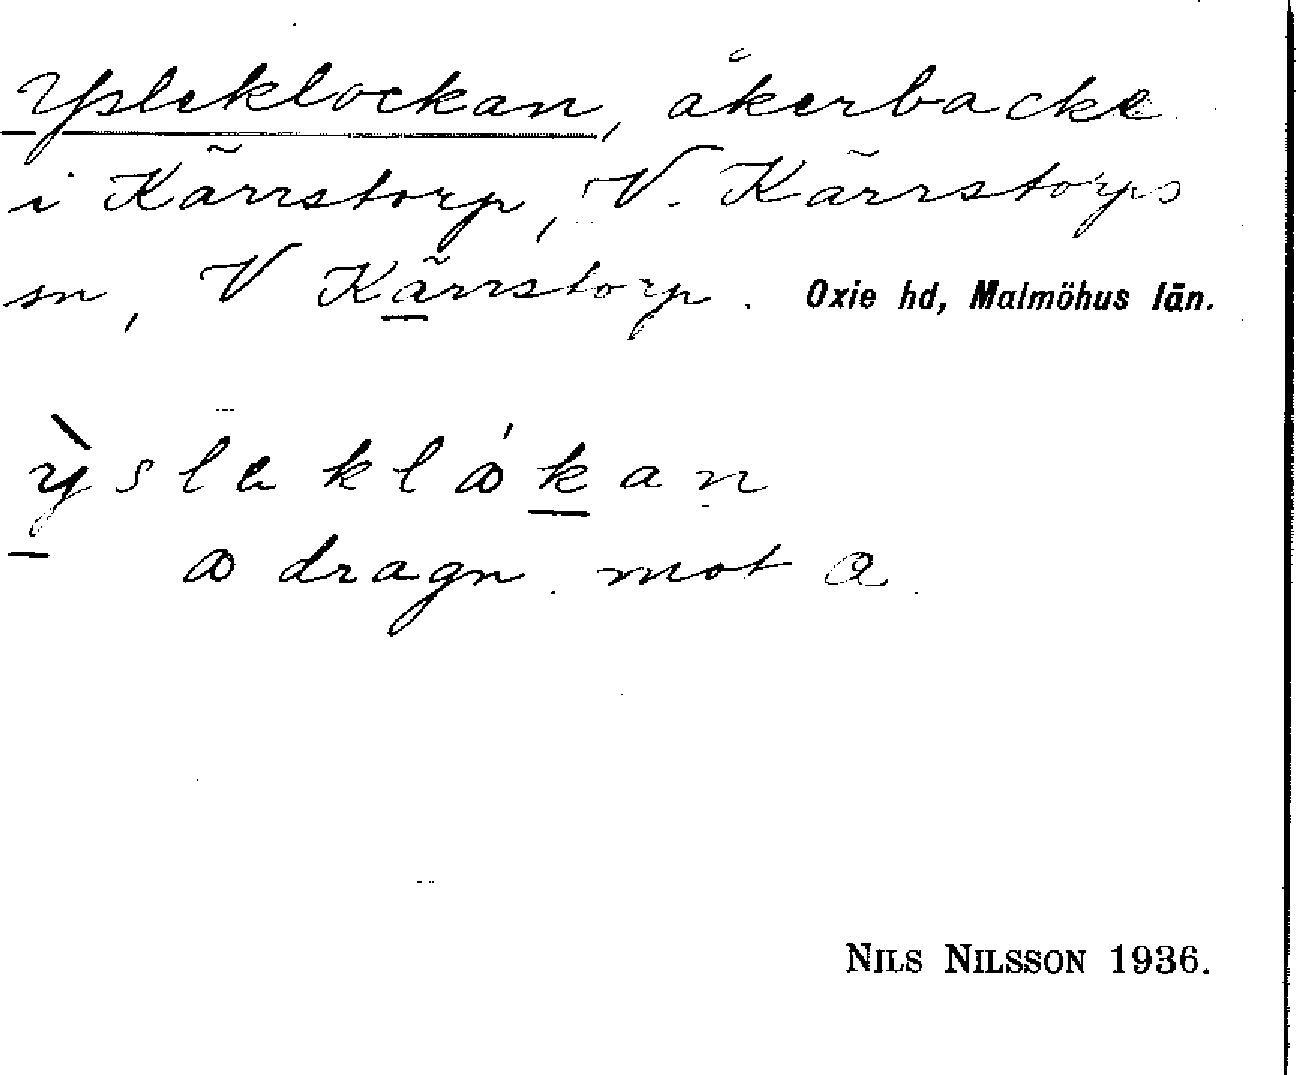 Ysleklockan, åkerbacke
i Kärrstorp, V. Kärrstorps
sn, V Kärrstorp. Oxie hd, Malmöhus län.
ỳsleklåkan
dragn. mot a
NILS NILSSON 1936.